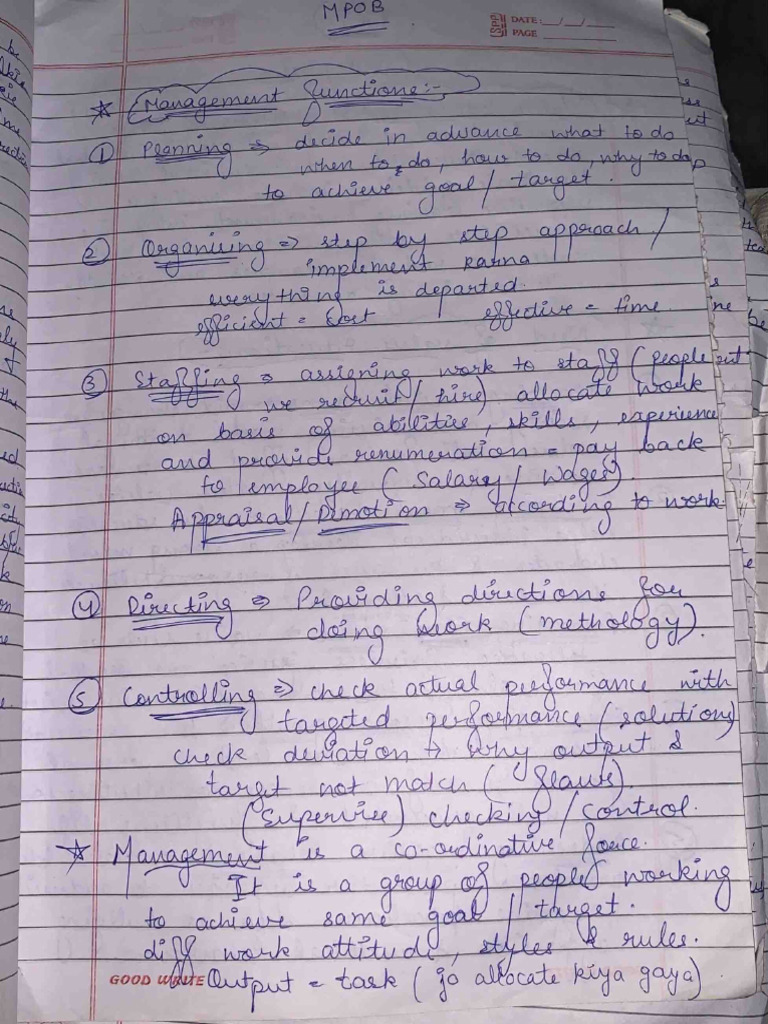 MPOB
SPP DATE: __/__/__
PAGE
☆ Management functions:-
① Planning ⇒ decide in advance what to do
when to do, how to do, why to do
to achieve goal / target.
② Organizing ⇒ step by step approach /
implement karna
everything is departed.
efficient = Cost effective = time
③ Staffing ⇒ assigning work to staff (people
we recruit / hire) allocate work
on basis of abilities, skills, experience
and provide renumeration = pay back
to employee (Salary / wages).
Appraisal / Demotion ⇒ according to work
④ Directing ⇒ Providing directions for
doing work (methology).
⑤ Controlling ⇒ check actual performance with
targeted performance (solutions)
check deviation → why output &
target not match
(Supervise) checking / control.
☆ Management is a co-ordinative force.
It is a group of people working
to achieve same goal / target.
diff work attitude, styles & rules.
GOOD WRITE Output = task (jo allocate kiya gaya)